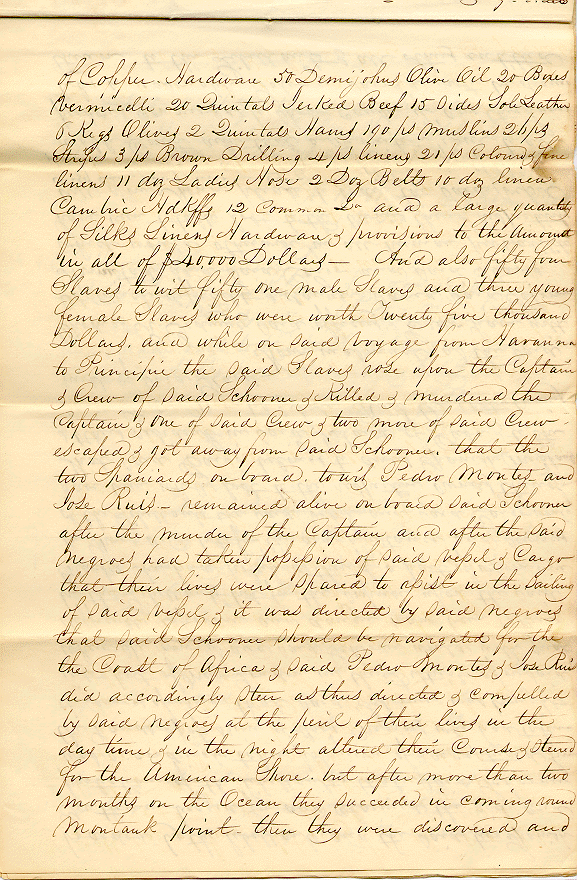 of Copper. Hardware 50 Demijohns Olive Oil 20 Boxes
Vermicelli 20 Quintals Jerked Beef 15 Sides Sole Leather
6 Kegs Olives 2 Quintals Hams 190 ps Muslins 26 ps
Stripes 3 ps Brown Drilling 4 ps linens 21 ps Coloured & fine
linens 11 doz Ladies Hose 2 Doz Belts 10 doz linen
Cambric Hdkffs 12 Common Do and a large quantity
of Silks Linens Hardware & provisions to the Amount
in all of $40,000 Dollars — And also fifty four
Slaves to wit fifty one male Slaves and three young
female Slaves who were worth Twenty five thousand
Dollars. and while on said voyage from Havanna
to Principie the said Slaves rose upon the Captain
& Crew of said Schooner & Killed & murdered the
Captain & one of said Crew & two more of said Crew
escaped & got away from said Schooner. that the
two Spaniards on board. to wit Pedro Montes and
Jose Ruis – remained alive on board said Schooner
after the murder of the Captain and after the said
negroes had taken possession of said vessel & Cargo
that their lives were spared to assist in the sailing
of said vessel & it was directed by said negroes
that said Schooner should be navigated for the
the Coast of Africa & said Pedro Montes & Jose Ruis
did accordingly steer as thus directed & compelled
by said negroes at the peril of their lives in the
day time & in the night altered their Course & steered
for the American Shore. but after more than two
months on the Ocean they succeeded in coming round
Montauk point. then they were discovered and